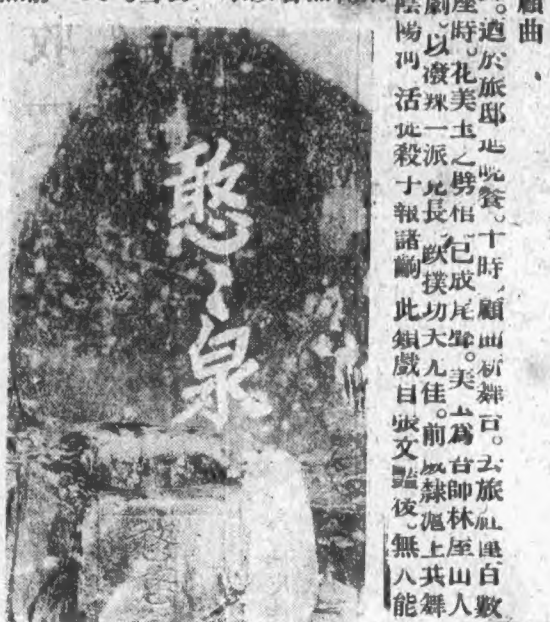 顧曲
適於旅邸進晚餐。十時、顧曲新舞台。去旅社僅百數
座時。花美士之劈棺、已成尾聲。美士爲台師林屋山人
劇。以潑辣一派見長、跌撲功夫尤佳。前隸滬上共舞
陰陽河活捉殺子報諸齣、此類戲目張文豔後、無人能
憨〻泉